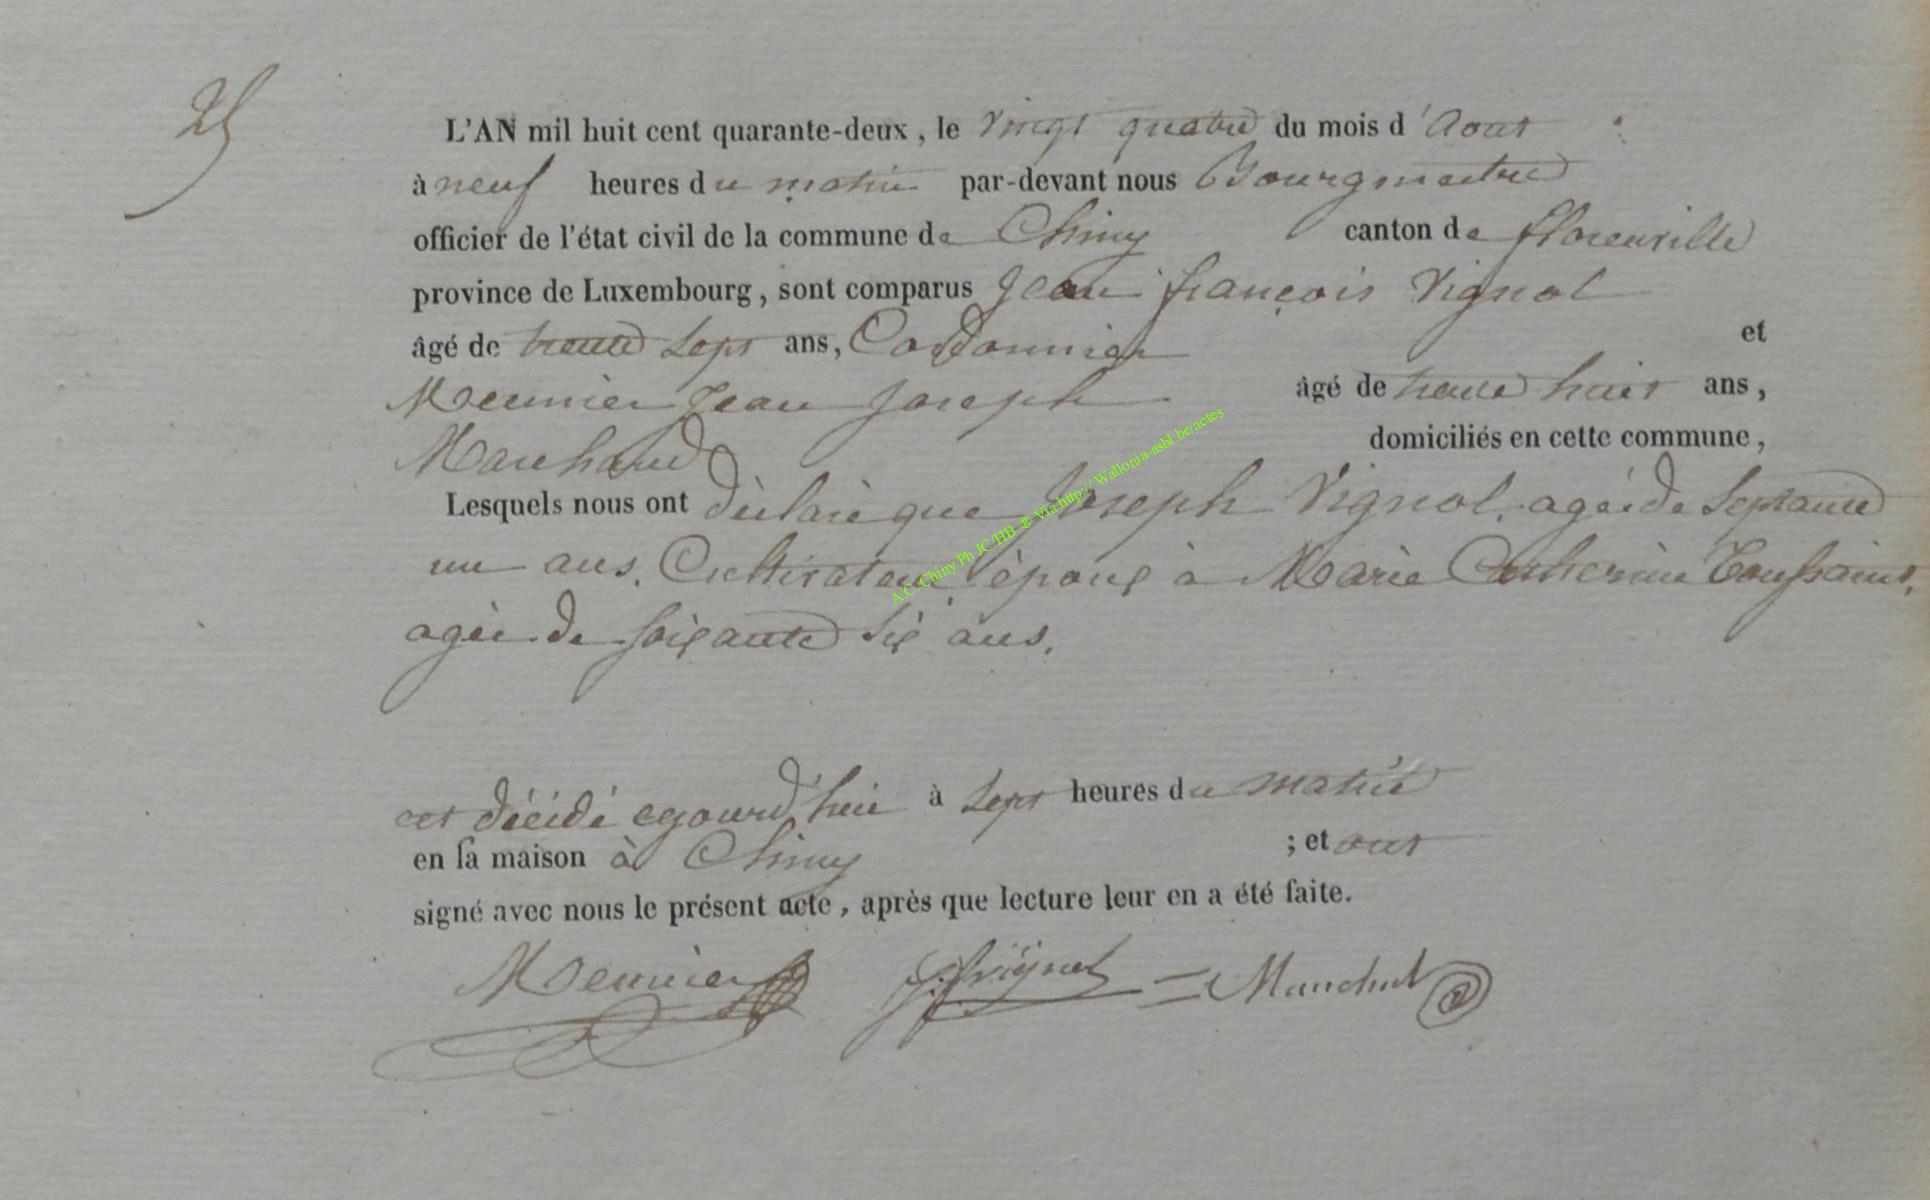 25
L'AN mil huit cent quarante-deux, le vingt quatre du mois d'Aout
à neuf heures du matin par-devant nous Bourgmestre
officier de l'état civil de la commune de Chiny canton de florenville
province de Luxembourg, sont comparus Jean françois Vignol
âgé de trente sept ans, Cordonnier et
Meunier Jean Joseph âgé de trente huit ans,
Marchand domiciliés en cette commune,
Lesquels nous ont déclaré que Joseph Vignol, agé de septante
un ans, Cultivateur, époux à Marie Catherine Toussaint,
agée de soixante six ans,
est décédé ajourd'hui à sept heures du matin
en sa maison à Chiny ; et ont
signé avec nous le présent acte, après que lecture leur en a été faite.
Meunier J.f.vignol
A.C. Chiny Ph JC/HB ® Via http:// Wallonia-asbl be/actes